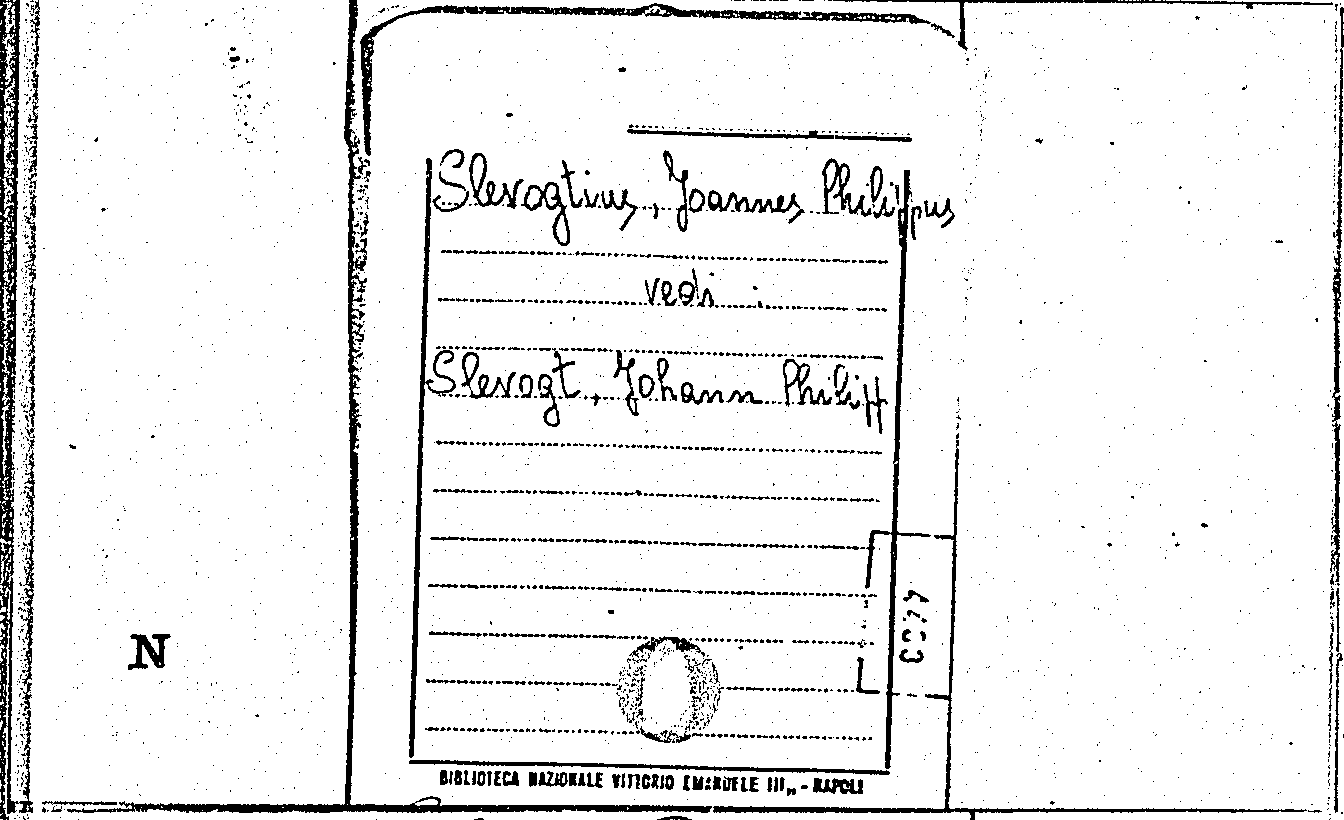 Slevogtius, Joannes Philippus
vedi :
Slevogt, Johann Philipp
N
BIBLIOTECA NAZIONALE VITTORIO EMANUELE III„ - NAPOLI